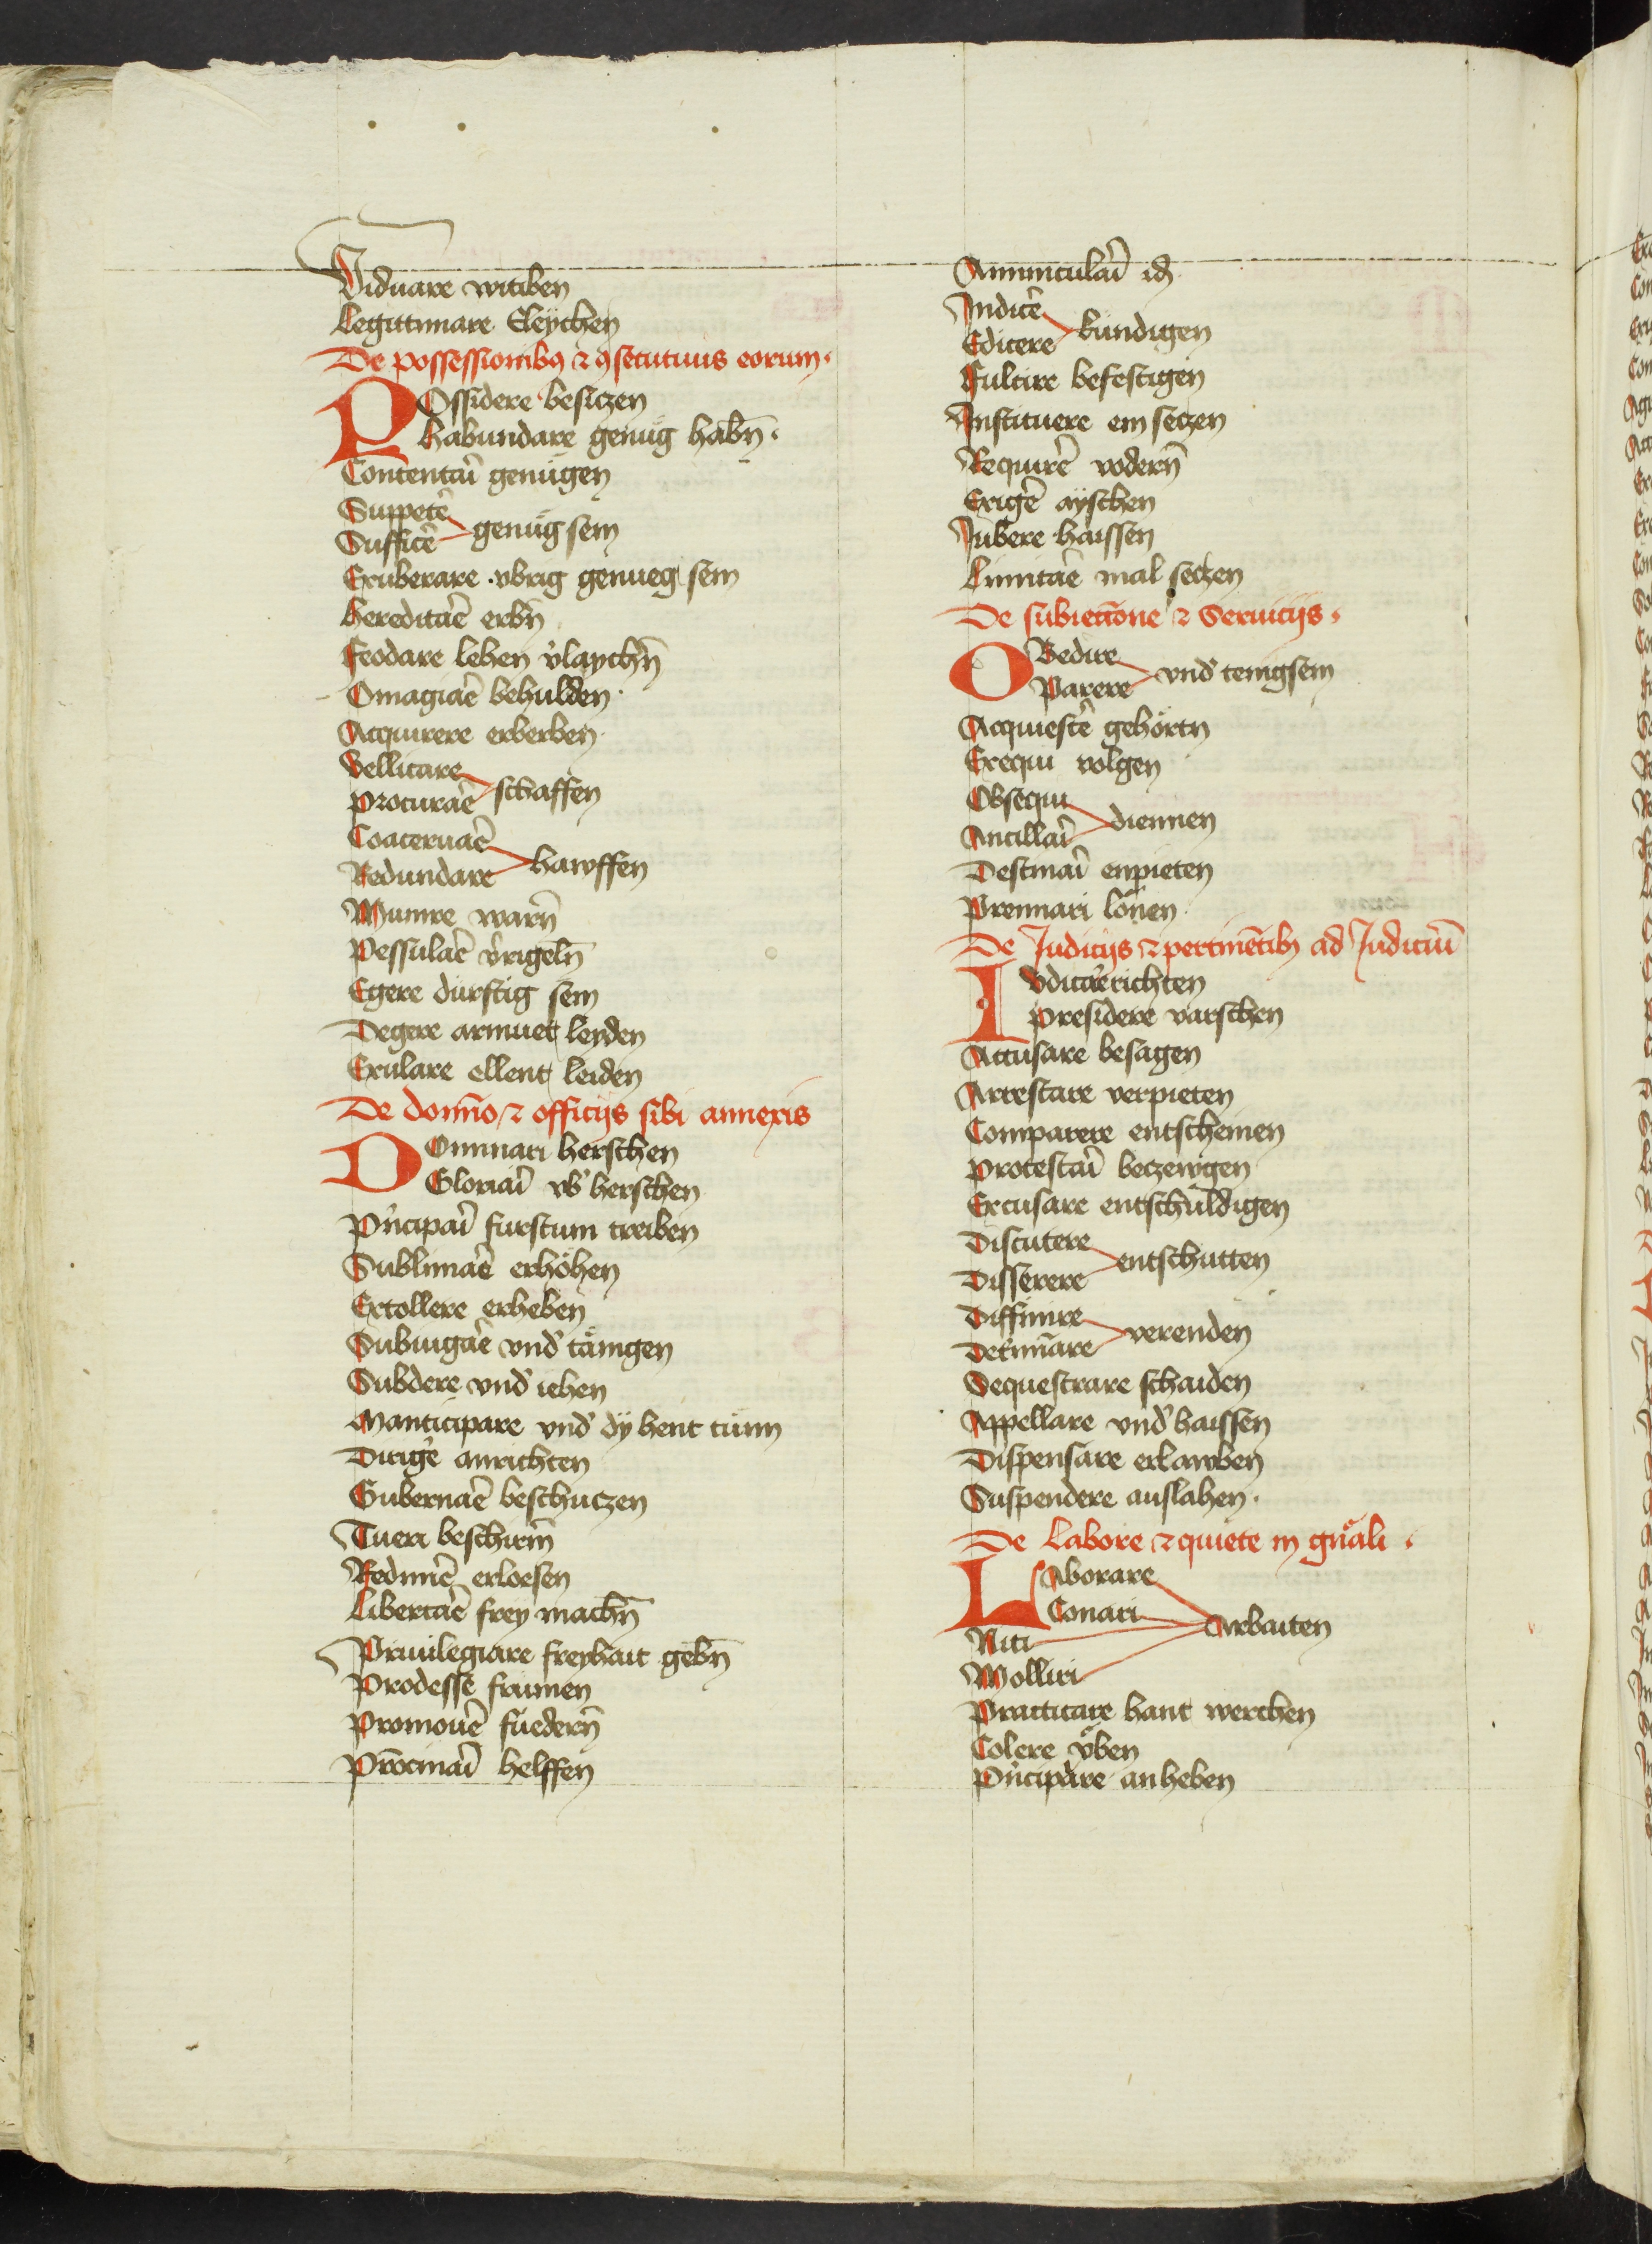 Viduare witiben
Legittimare Eleychen
De possessionibꝫ ⁊ ꝯsecutiuis eorum·
POssidere besiczen
habundare genůg habn̄·
Contentar̄i genůgen
Suppeter̄e
Sufficer̄e genůg sein
Exuberare vbrig genueg sein
hereditar̄e erbn̄
Feodare lehen v̓laychn̄
Omagiar̄e behulden·
Acquirere erberben·
Vellicare
procurar̄e schaffen
Coaceruar̄e
Redundare hawffen
Munire warn̄
Pessular̄e v̓rigeln̄
Egere dürftig sein
Degere armuet leyden
Exulare ellent leiden
De domīo ⁊ officijs sibi annexis
DOminari herschen
Gloriar̄i vb̓ herschen
Pn̓cipar̄i furstum treiben
Sublimar̄e erhöhen
Extollere erheben
Subiugar̄e vnd̓ tänigen
Subdere vnd̓ iehen
Mancicipare vnd̓ dÿ hent tůnn
Dirig̓e anrichten
Gubernar̄e beschuczen
Tueri beschirm̄
Redimer̄e erlosen
Libertar̄e frey machn̄
Priuilegiare freyhait gebn̄
Prodesse frumen
Promouer̄e fuedern̄
Pr̄ocinar̄i helffen
Amminicular̄i id
Indicer̄e
Edicere kündigen
Fulcire befestigen
Instituere ein seczen
Requirer̄e vodern̄
Exiger̄e ayschen
Jubere haissen
Limitar̄e mal seczen
De subiectione ⁊ Seruicijs·
OBedire
Parere vnd̓ tenigsein
Acquiescer̄e gehörtn
Exequi volgen
Obsequi
Ancillar̄i diennen
Destinar̄i enpieten
Premiari lönen
De Judicijs ⁊ pertinētibꝫ ad Judiciū
IUdicar̄e richten
Presidere varschen
Accusare besagen
Arrestare verpieten
Comparere entscheinen
protestar̄i beczewgen
Excusare entschuldigen
Discutere
Disserere entschütten
Diffinire
Det̓mīare verenden
Sequestrare schaiden
Appellare vnd̓haissen
Dispensare erlawben
Suspendere auslahen·
De labore ⁊ quiete in gn̓ali·
LAborare
Conari
Niti
Molliri Arbaiten
Practicare hant werchen
Colere vͤben
Pn̓cipare anheben